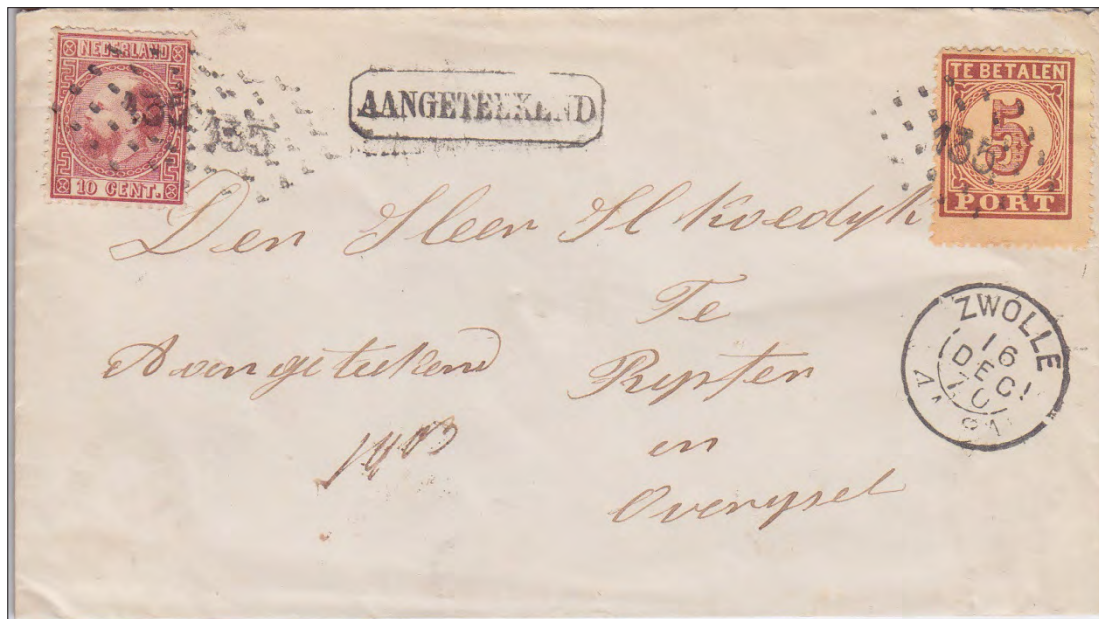 NEDERLAND
135
135
10 CENT.
AANGETEEKEND
TE BETALEN
5
135
PORT
Den Heer H Koedyk
Te
Aangeteekend
en
Overyssel
ZWOLLE
16
DEC
70